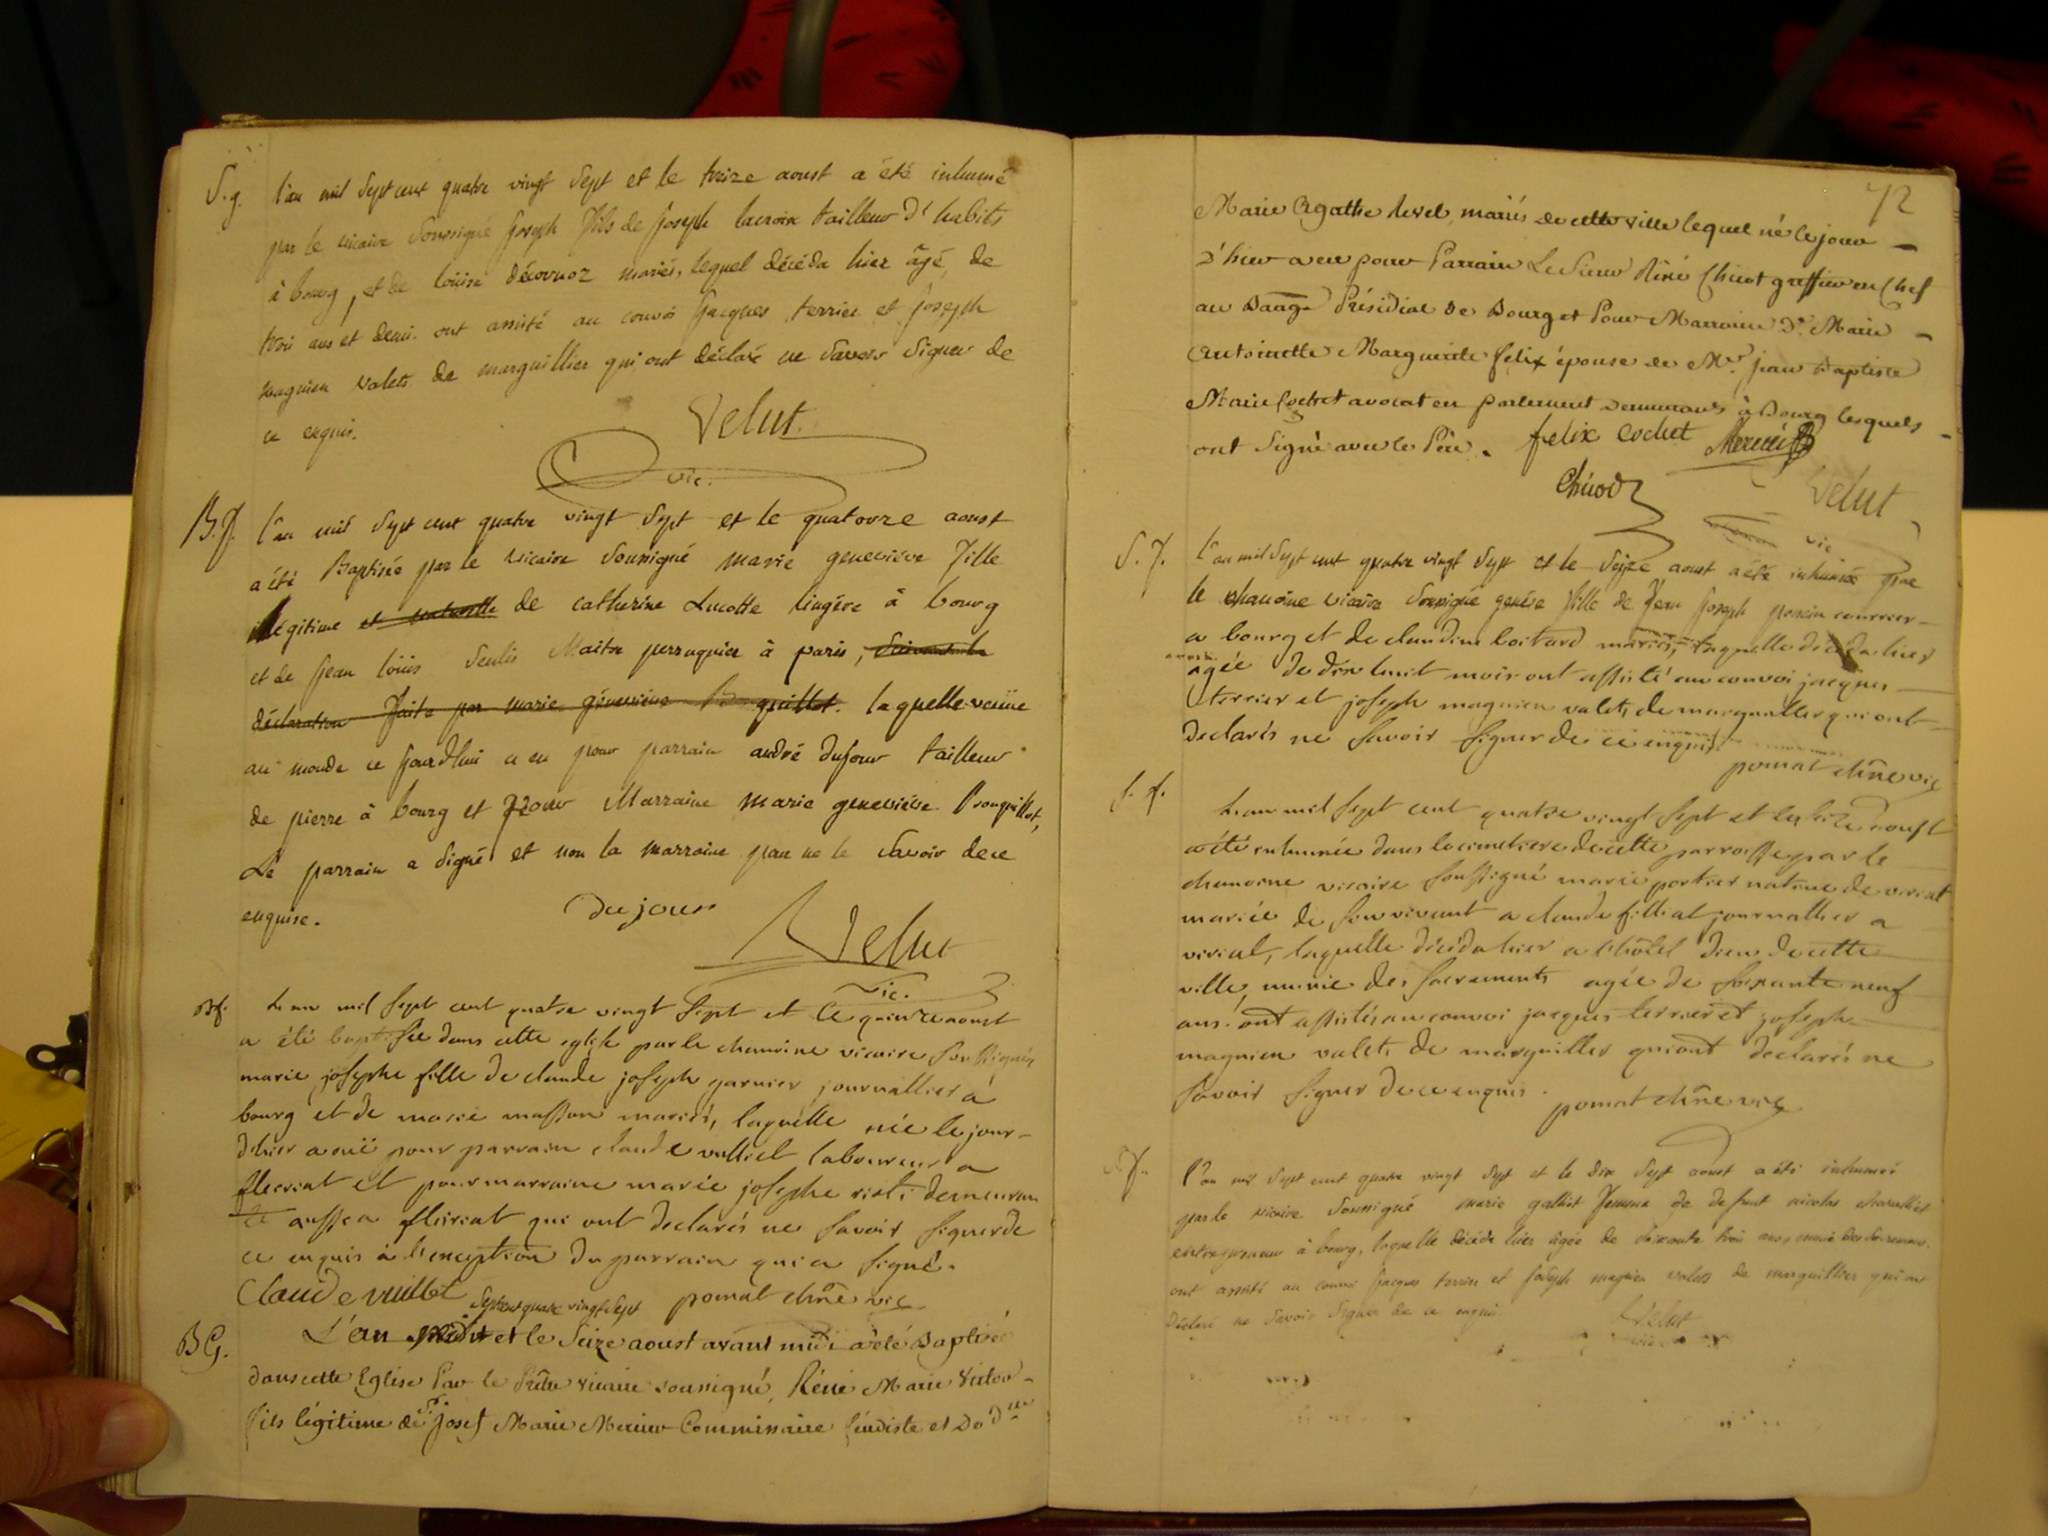 S. g. l'an mil sept cent quatre vingt sept et le treize aoust a été inhumé
par le vicaire soussigné joseph fils de joseph lacroix tailleur d'habits
à bourg, et de louise mariés, lequel décéda hier âgé de
trois ans et demi. ont assisté au convoi jacques terrier et joseph
magnien valets de marguillier qui ont déclaré ne savoir signer de
ce enquis.
Velut
vic.
B. f. l'an mil sept cent quatre vingt sept et le quatorze aoust
a été Baptisée par le vicaire soussigné marie geneviève fille
illégitime et naturelle de catherine Lucotte lingère à bourg
et de jean louis Maitre perruquier à paris, suivant la
déclaration faite par marie géneviève quillot. laquelle venüe
au monde ce jourd'hui a eu pour parrain andré dufour tailleur
de pierre à bourg et pour Marraine marie geneviève
Le parrain a signé et non la marraine pour ne le savoir de ce
enquise.
dufour
Velut
vic.
Bf. L'an mil sept cent quatre vingt sept et le quinze aoust
a été baptisée dans cette eglise par le chanoine vicaire soussigné
marie josephe fille de claude joseph garnier journallier à
bourg et de marie masson mariés, laquelle née le jour
d'hier a eüe pour parrain claude vuillet laboureur a
fleiriat et pour marraine marie josephe demeuran
te aussi a fleiriat qui ont declarés ne savoir signer de
ce enquis à l'exception du parrain qui a signé.
Claude vuillet pomat chne vic
sept cent quatre vingt sept
B G. L'an et le seize aoust avant midi a été Baptisé
dans cette Eglise Par le Prêtre vicaire soussigné, Réné Marie Victor
fils légitime de Sr josef Marie Mercier Commissaire feudiste et De dlle
72
Marie Agathe mariés de cette ville lequel né le jour
d'hier a eu pour Parrain Le Sieur Réné Chicot greffier en Chef
au Baage Présidial de Bourg et Pour Marraine De Marie
Antoinette Marguerite felix épouse de Mr jean Baptiste
Marie Cochet avocat en parlement demeurants à Bourg lesquels
ont signé avec le Père. felix cochet Mercier
Chicod Velut
vic
S. f. l'an mil sept cent quatre vingt sept et le seize aoust a été inhumée par
le chanoine vicaire soussigné fille de jean joseph courrier
a bourg et de claudine boitard mariés, laquelle décéda hier
agée de dix huit mois ont assisté au convoi jacques
terrier et joseph magnien valets de marguillier qui ont
declarés ne savoir signer de ce enquis
pomat chne vic
S. f. L'an mil sept cent quatre vingt sept et le seize aoust
a été inhumée dans le cimetiere de cette parroisse par le
chanoine vicaire soussigné marie portier native de viriat
mariée de son vivant a claude filliat journallier a
viriat, laquelle décéda hier a l'hôtel dieu de cette
ville, munie des sacrements agée de soixante neuf
ans. ont assistés au convoi jacques terrier et joseph
magnien valets de marguillier qui ont declarés ne
savoir signer de ce enquis.
pomat chne vic
l'an mil sept cent quatre vingt sept et le dix sept aoust a été inhumée
par le vicaire soussigné marie femme de defunt nicolas
entrepreneur à bourg, laquelle décéda hier âgée de soixante trois ans munie des sacremens.
ont assisté au convoi jacques terrier et joseph magnien valets de marguillier qui ont
déclaré ne savoir signer de ce enquis
Velut